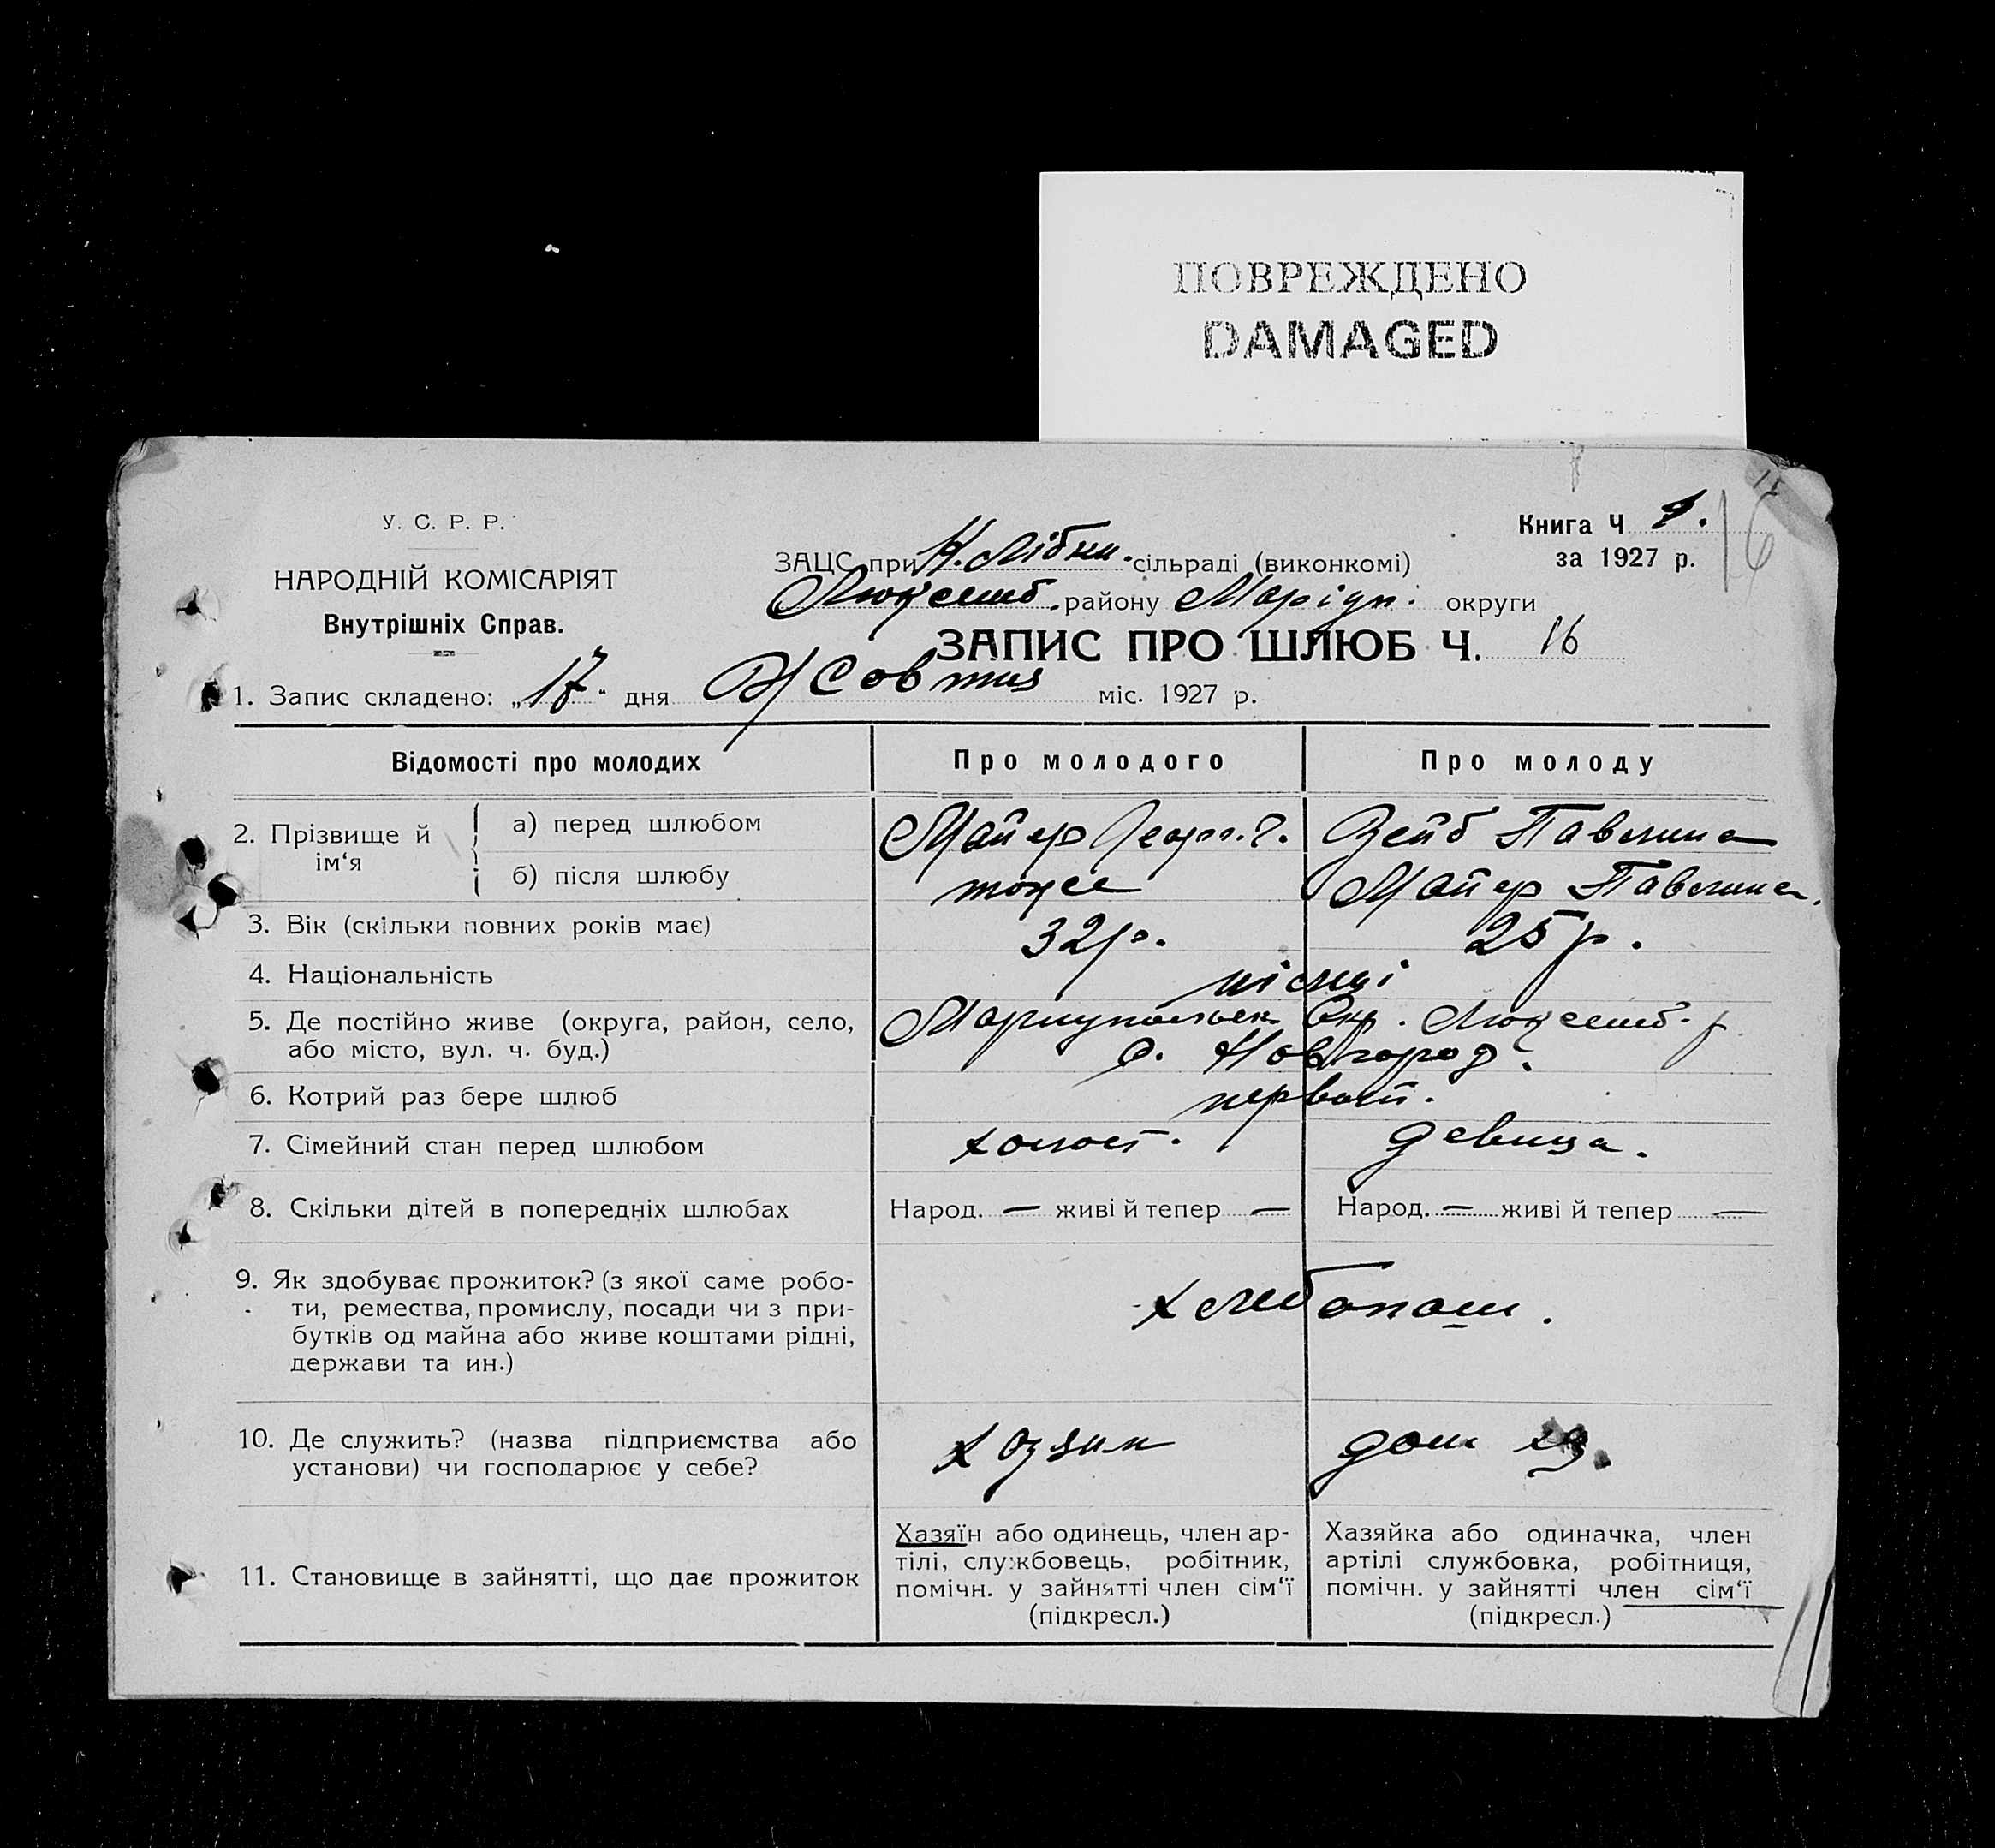 ПОВРЕЖДЕНО
DAMAGED
У. С. Р. Р.
НАРОДНІЙ КОМІСАРІЯТ
Внутрішніх Справ.
Книга Ч
за 1927 р.
16
ЗАЦС при Н. Лібки. сільраді (виконкомі)
Люксемб. району Маріуп. округи
ЗАПИС ПРО ШЛЮБ Ч. 16
1. Запис складено: „17“ дня Жовтня міс. 1927 р.
Відомості про молодих Про молодого Про молоду
2. Прізвище й ім‘я
а) перед шлюбом Майер Георг. Г. Зейб Павлина
б) після шлюбу тоже Майер Павлина.
3. Вік (скільки повних років має) 32 р. 25 р.
4. Національність німці
5. Де постійно живе (округа, район, село, Мариупольск. Окр. Люксемб. р
або місто, вул. ч. буд.) с. Новгород.
6. Котрий раз бере шлюб первый.
7. Сімейний стан перед шлюбом холост. девица.
8. Скільки дітей в попередніх шлюбах Народ. — живі й тепер — Народ. — живі й тепер —
9. Як здобуває прожиток? (з якої саме робо-
ти, ремества, промислу, посади чи з при-
бутків од майна або живе коштами рідні,
держави та ин.)
хлебопаш.
10. Де служить? (назва підприємства або
установи) чи господарює у себе?
хозяин дом хоз.
11. Становище в зайнятті, що дає прожиток
Хазяїн або одинець, член ар-
тілі, службовець, робітник,
помічн. у зайнятті член сім‘ї
(підкресл.)
Хазяйка або одиначка, член
артілі службовка, робітниця,
помічн. у зайнятті член сім‘ї
(підкресл.)